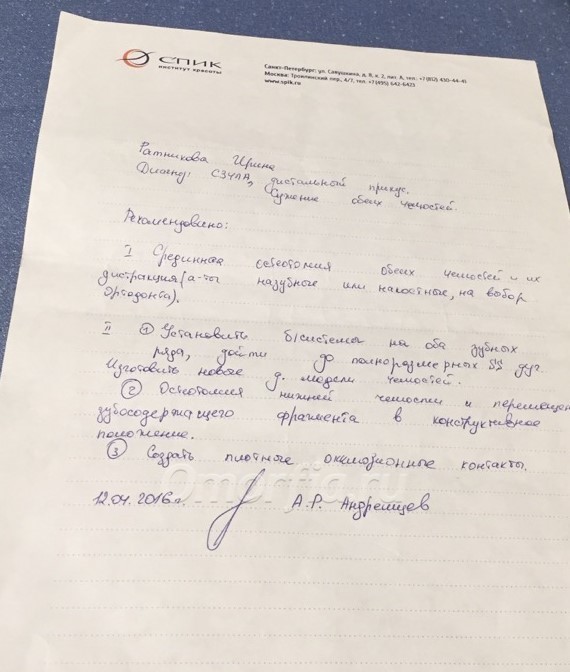 СПИК
институт красоты
Санкт-Петербург: ул. Савушкина, д. 8, к. 2, лит. А, тел.: +7 (812) 430-44-41
Москва: Троилинский пер., 4/7, тел. +7 (495) 642-6423
www.spik.ru
Ратникова Ирина
Диагноз: СЗЧЛА, дистальный прикус.
Сужение обеих челюстей.
Рекомендовано:
I Срединная остеотомия обеих челюстей и их
дистракция (а-ты назубные или накостные, на выбор
ортодонта).
II ① Установить б/системы на оба зубных
ряда, дойти до полноразмерных SS дуг.
Изготовить новые д. модели челюстей.
② Остеотомия нижней челюсти и перемещен
зубосодержащего фрагмента в конструктивное
положение.
③ Создать плотные окклюзионные контакты.
Omorfia.ru
12.04.2016г. А.Р. Андреищев